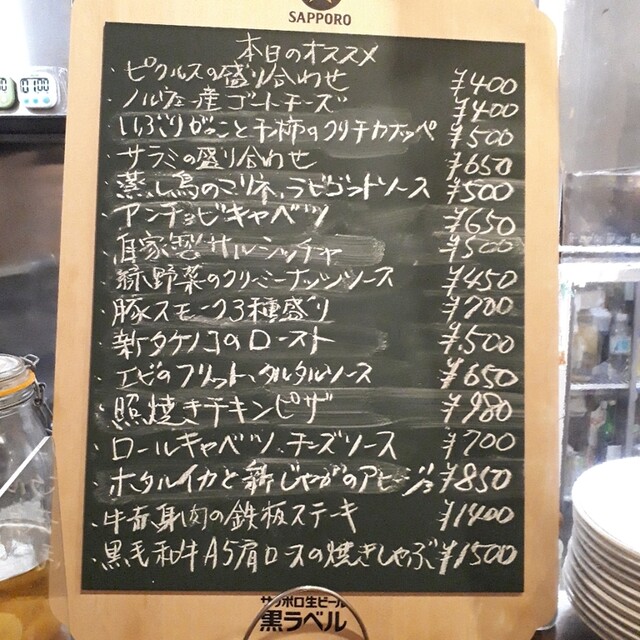 SAPPORO
本日のオススメ
・ピクルスの盛り合わせ ¥400
・ノルウェー産ゴートチーズ ¥400
・いぶりがっこと干柿のクリチカナッペ ¥500
・サラミの盛り合わせ ¥650
・蒸し鳥のマリネ、ラビゴットソース ¥500
・アンチョビキャベツ ¥650
・自家製サルシッチャ ¥500
・緑野菜のクリーミーナッツソース ¥450
・豚スモーク3種盛り ¥700
・新タケノコのロースト ¥500
・エビのフリット、タルタルソース ¥650
・照焼きチキンピザ ¥980
・ロールキャベツ、チーズソース ¥700
・ホタルイカと新じゃがのアヒージョ ¥850
・牛赤身肉の鉄板ステキ ¥1400
・黒毛和牛A5肩ロースの焼きしゃぶ ¥1500
サッポロ生ビール
黒ラベル